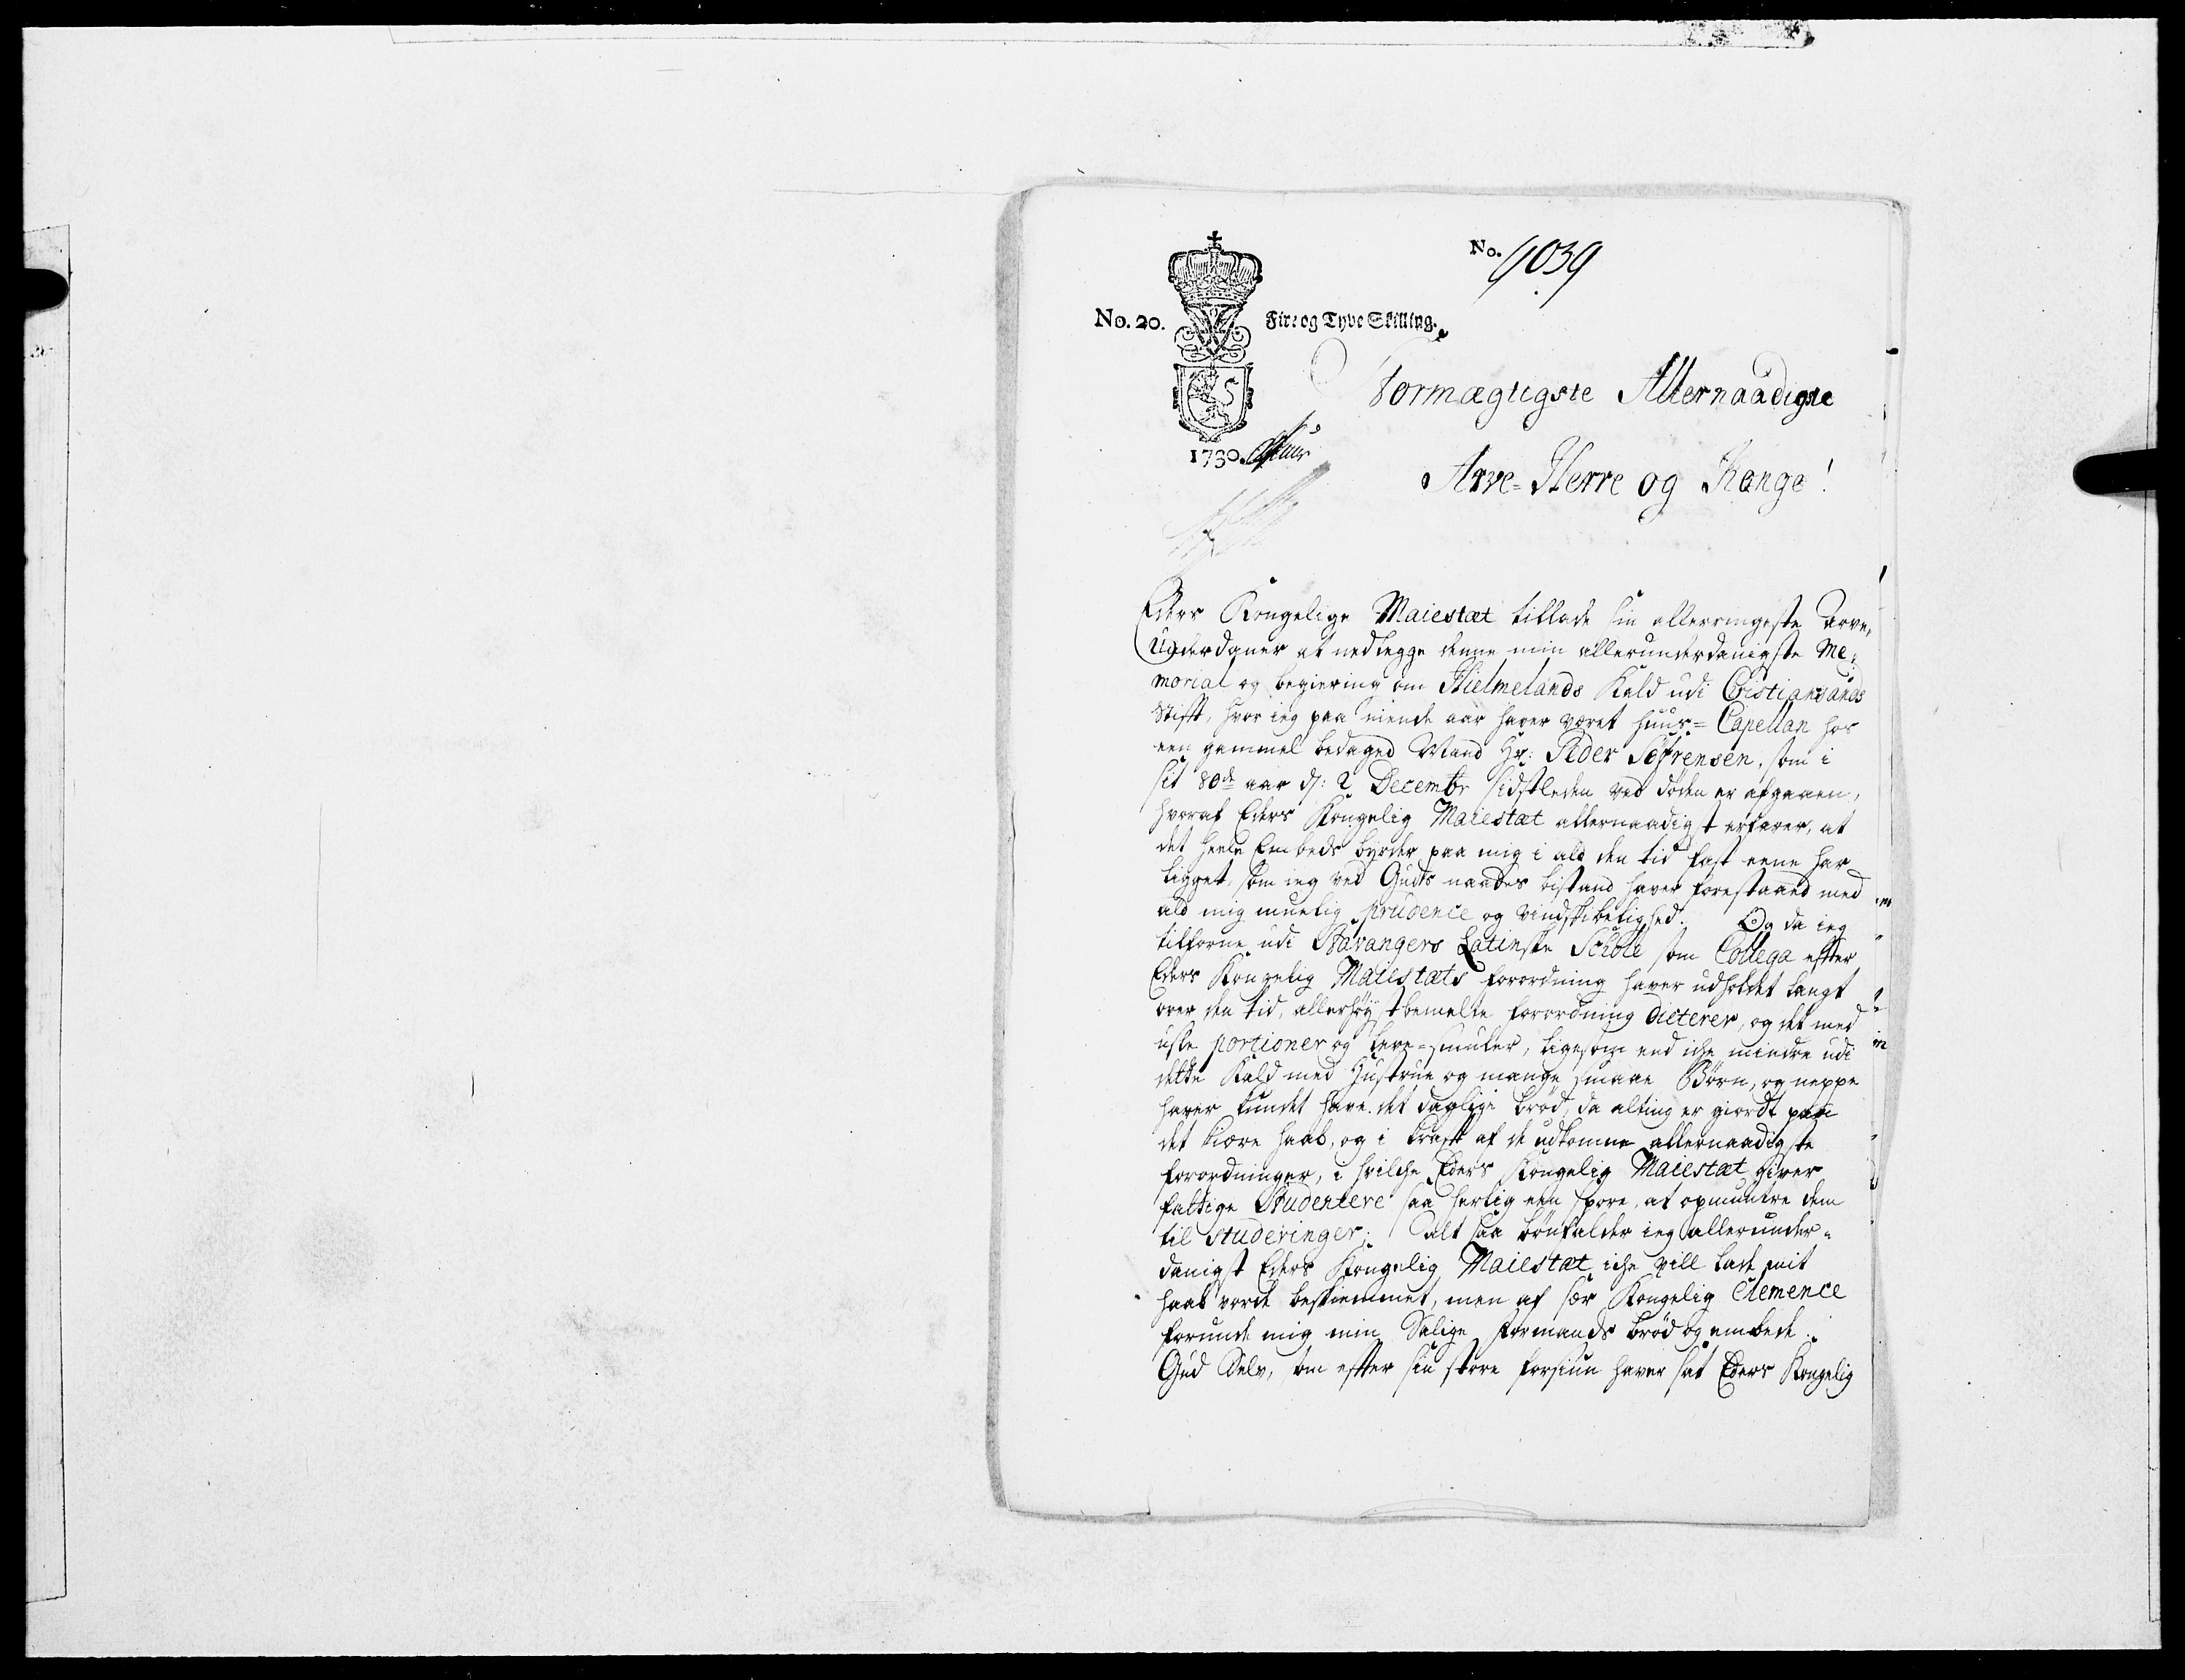 No. 9039
No. 20. Fire og Tyve Skilling.
1730.
Stormægtigste Allernaadigste
Arve-Herre og Konge!
Eders Kongelige Maiestæt tillade sin allerringeste Arve,
Underdaner at nedlegge denne min allerunderdanigste Me:
morial og begiering om Hielmelands Kald udi Cristiansands
Stift, hvor ieg paa niende aar haver været huus= Capellan hos
een gammel bedaged Mand Hr: Peder Søfrensen, som i
sit 80de aar d: 2 Decembr sidstleden ved døden er afgaaen,
hvoraf Eders Kongelig Maiestæt allernaadigst erfarer, at
det heele Embeds byrder paa mig i ald den tid fast eene har
ligget, som ieg ved Guds naades bistand haver forestaaed med
ald mig muelig prudence og vindskibelighed. Og da ieg
tilforne udi Stavangers Latinske Schole som Collega efter
Eders Kongelig Maiestæts forordning haver udholdet langt
over den tid, allerhøystbemelte forordning dicterer, og det med
usle portioner og leve=smuler, ligesom end iche mindre udi
dette Kald med Hustrue og mange smaae Børn, og neppe
haver kundet have det daglige brød, da alting er giordt paa
det kiære haab, og i krafft af de udkomne allernaadigste
forordninger, i hvilche Eders Kongelig Maiestæt giver
fattige Studentere saa herlig een spore, at opmuntre dem
til studeringer; alt saa bønfalder ieg allerunder=
danigst Eders Kongelig Maiestæt iche vill lade mit
haab vorde beskiemmet, men af sær Kongelig Clemence
forunde mig min Salige formands brød og embede.
Gud Selv, som efter sin store forsiun haver sat Eders Kongelig